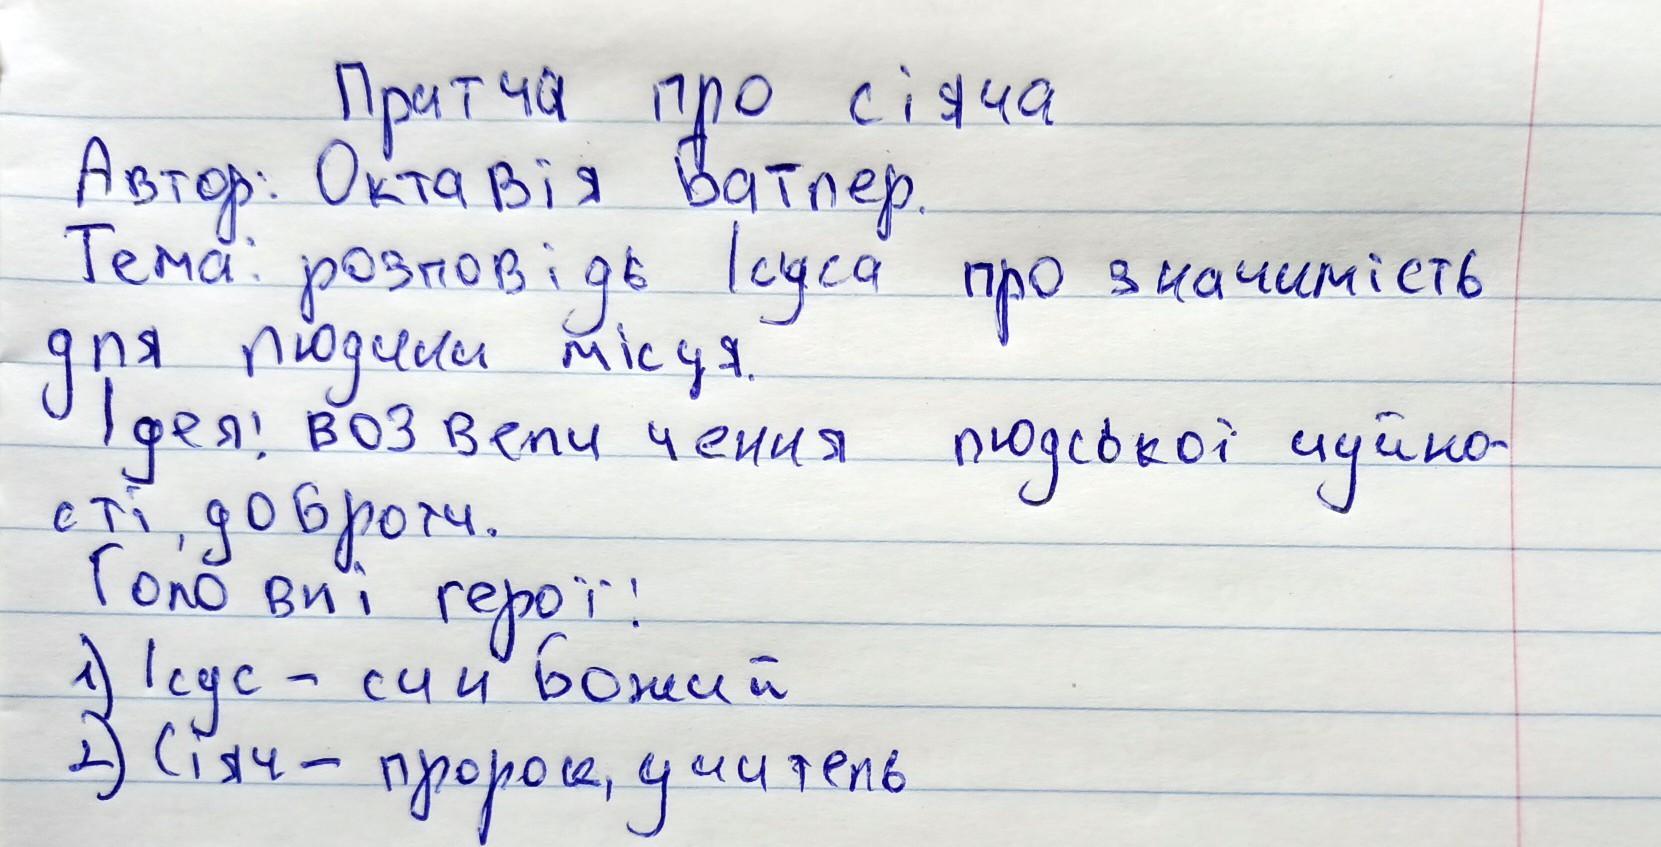 Притча про сіяча
Автор: Октавія Батлер.
Тема: розповідь Ісуса про значимість
для людини місця.
Ідея: возвеличення людської чуйно-
сті, доброти.
Головні герої:
1) Ісус - син Божий
2) Сіяч - пророк, учитель